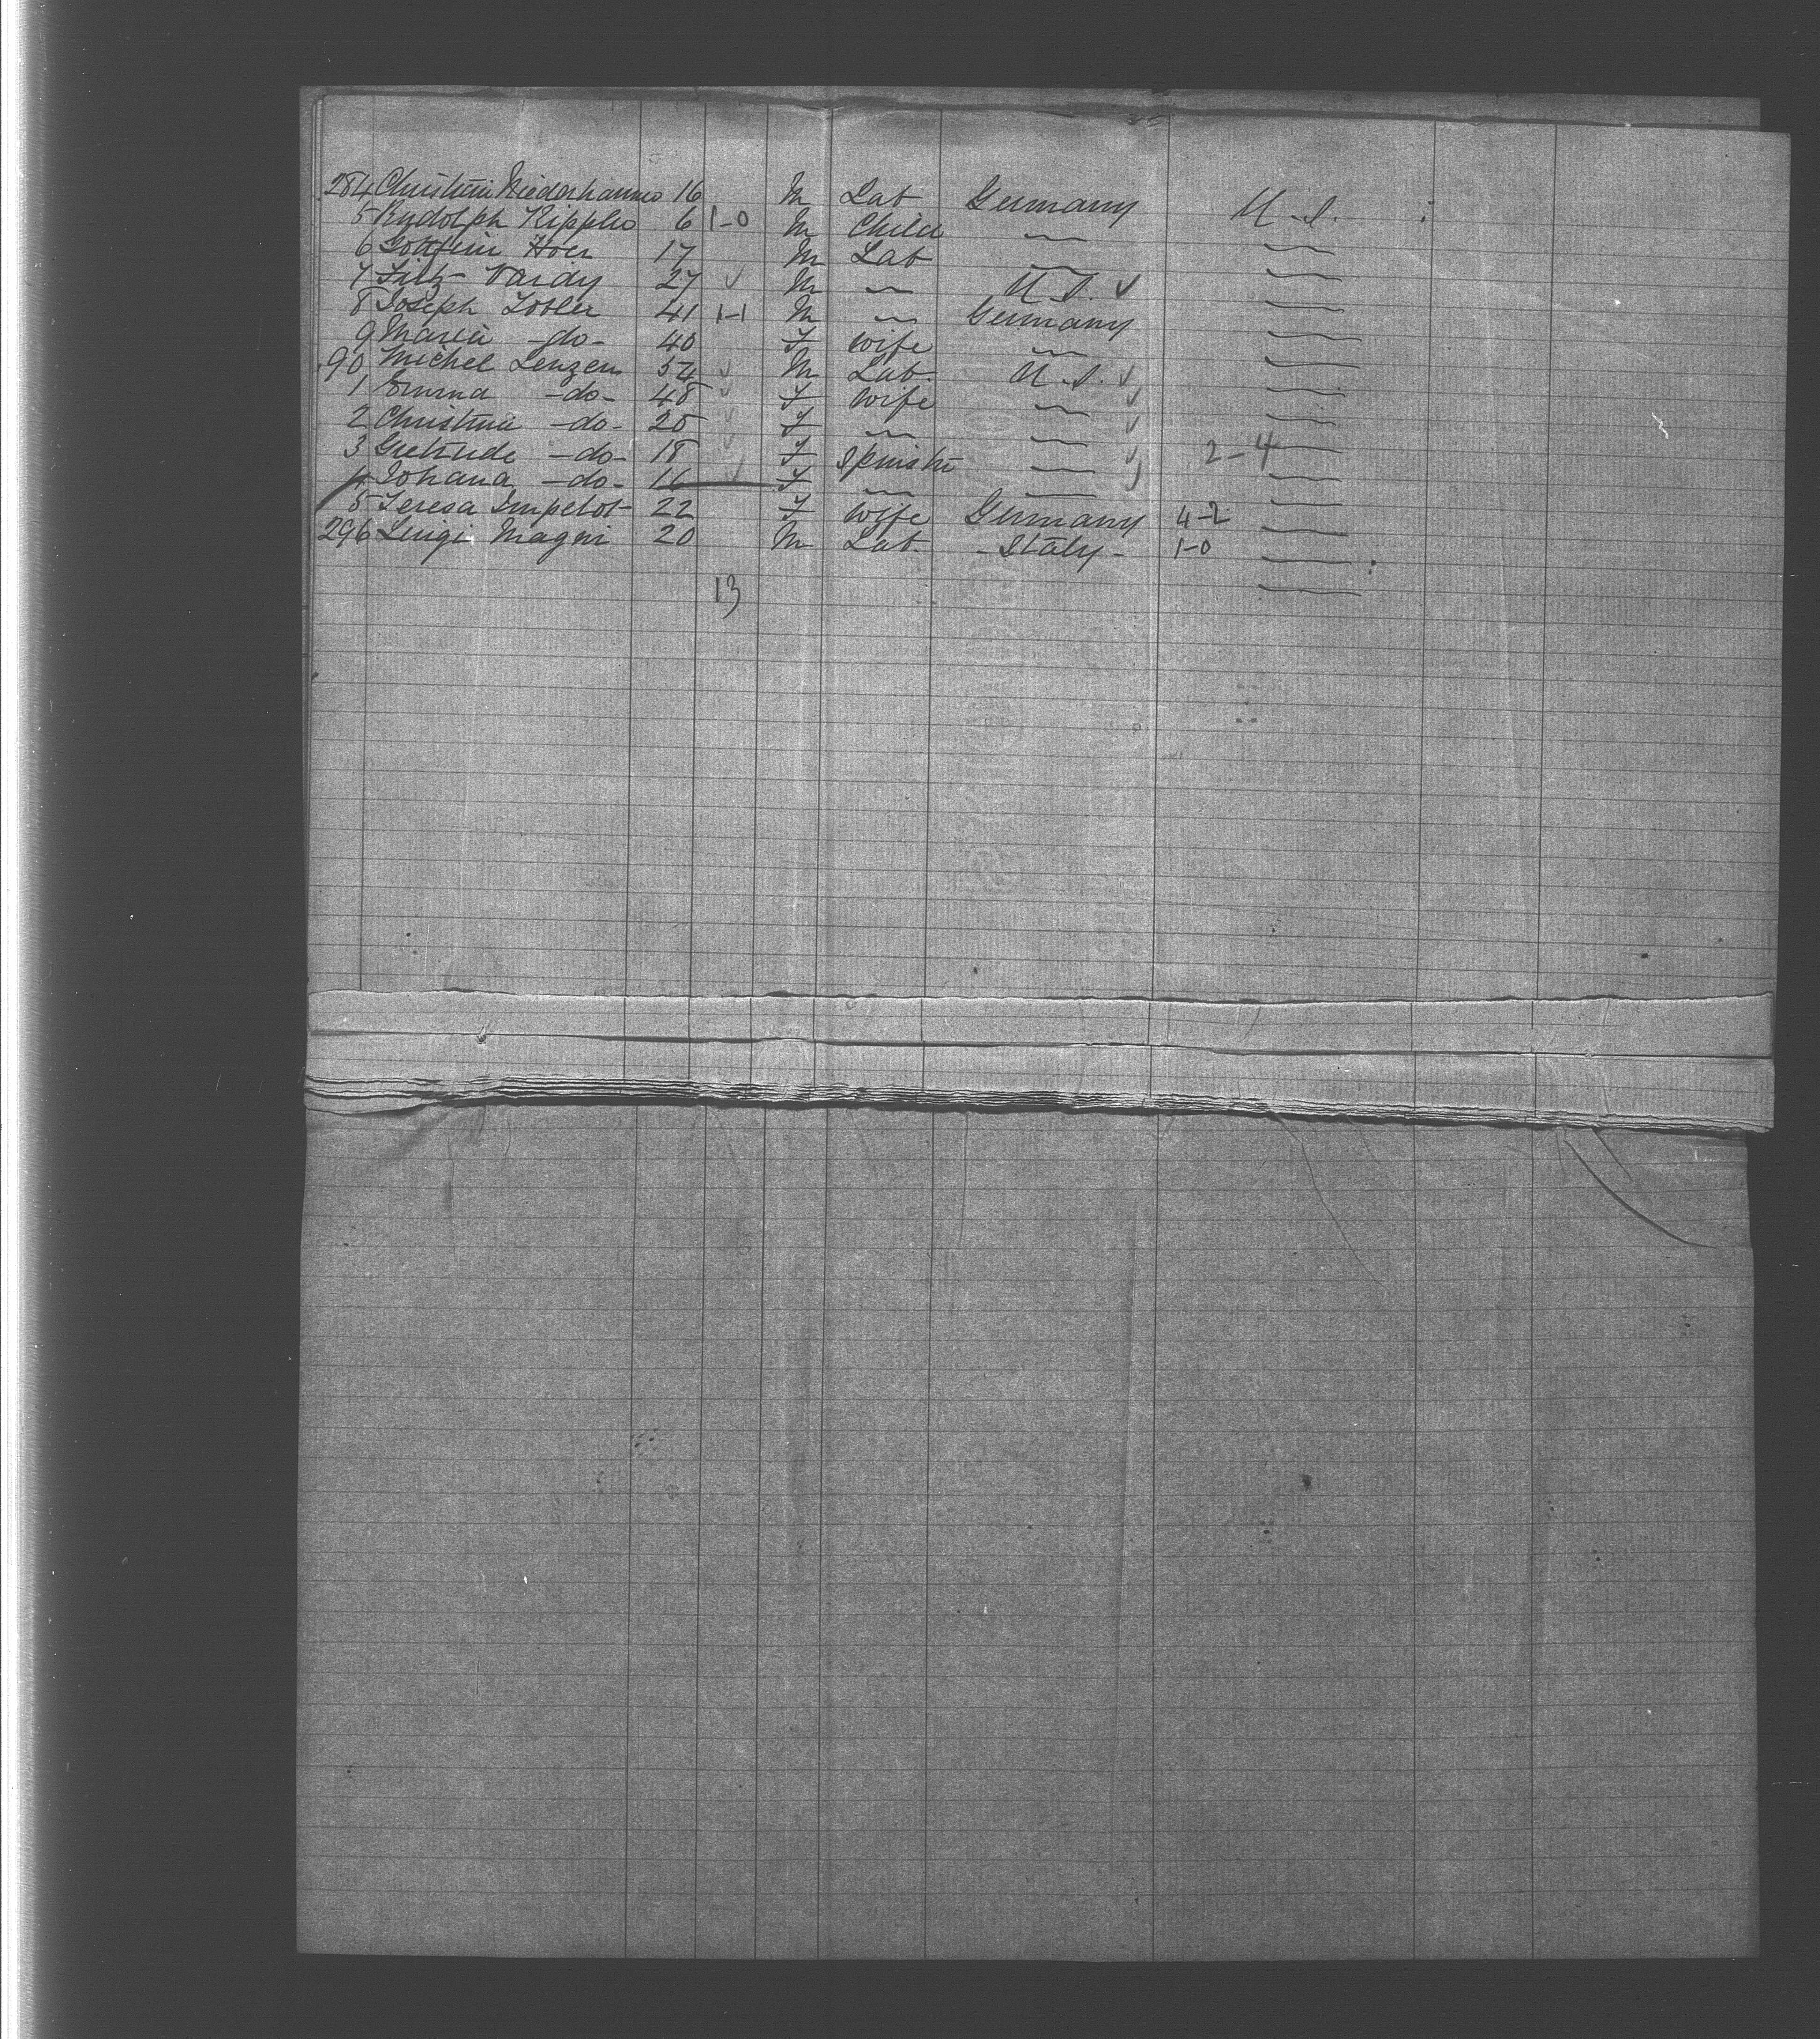 284 Christian Niederhauses 16 M Lab Germany U.S.
5 Rudolph Kippho 6 1-0 M Child " "
6 Hoer 17 M Lab " "
7 Fritz Vardy 27 ✓ M " U.S. ✓ "
8 Joseph Zobler 41 1-1 M " Germany "
9 Maria -do- 40 F wife " "
90 Michel Lenzen 54 ✓ M Lab. U.S. ✓ "
1 Emma -do- 48 ✓ F wife " ✓ "
2 Christina -do- 20 ✓ F " " ✓ "
3 Gertrude -do- 18 ✓ F Spinster " ✓ 2-4 "
4 Johana -do- 16 ✓ F " " ✓ "
5 Teresa Impelot 22 F wife Germany 4-2 "
296 Luigi Magni 20 M Lab. -Italy- 1-0 "
13